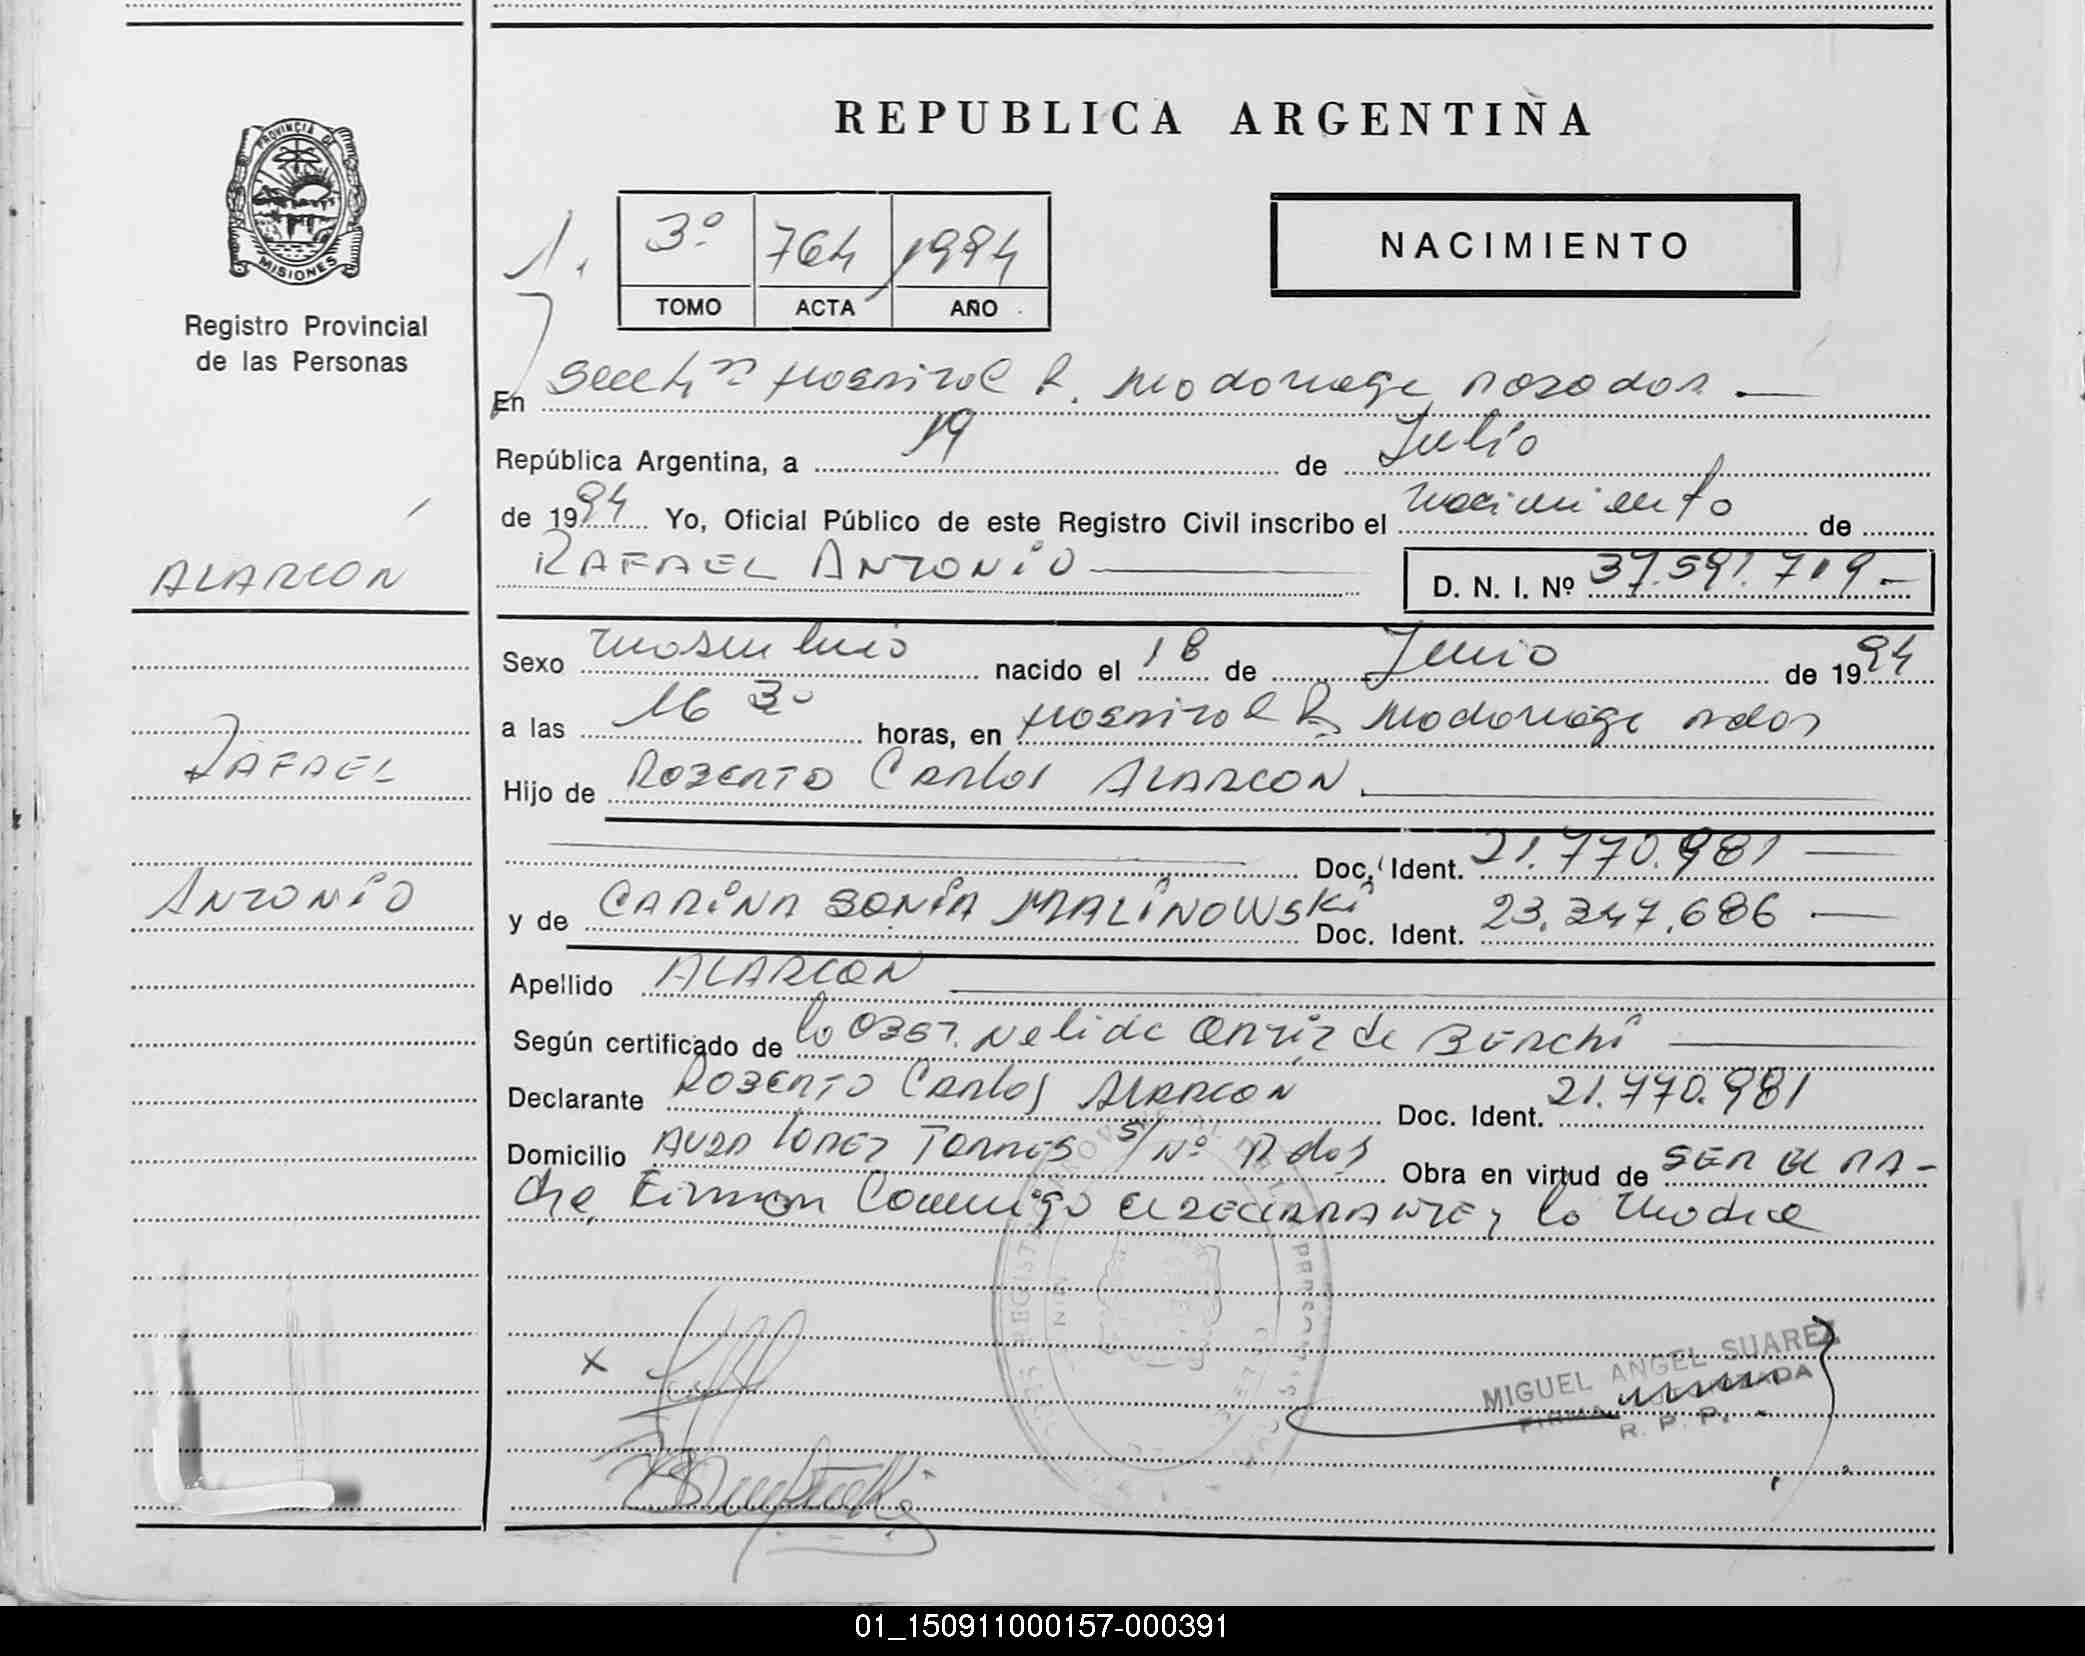 REPUBLICA ARGENTINA
PROVINCIA DE
MISIONES
Registro Provincial
de las Personas
1.
3º 764 1994
TOMO ACTA AÑO
NACIMIENTO
En Secc 4ª Hospital R. Madariaga Posadas
República Argentina, a 19 de Julio
de 1994 Yo, Oficial Público de este Registro Civil inscribo el nacimiento de
RAFAEL ANTONIO D. N. I. Nº 37.591.719.-
ALARCON
RAFAEL
ANTONIO
Sexo masculino nacido el 18 de Junio de 1994
a las 16 30 horas, en Hospital R. Madariaga Pdas
Hijo de ROBERTO Carlos ALARCON
Doc. Ident. 21.770.981
y de CARINA SONIA MALINOWSKi Doc. Ident. 23.347.686
Apellido ALARCON
Según certificado de la OBST. Nelida Ortiz de BERCHI
Declarante ROBERTO Carlos ALARCON Doc. Ident. 21.770.981
Domicilio AVDA LOPEZ TORRES S/Nº Pdas Obra en virtud de SER EL PA-
dre, Firman Conmigo el DECLARANTE y la Madre
x
MIGUEL ANGEL SUAREZ
FIRMA
R. P. P.
01_150911000157-000391